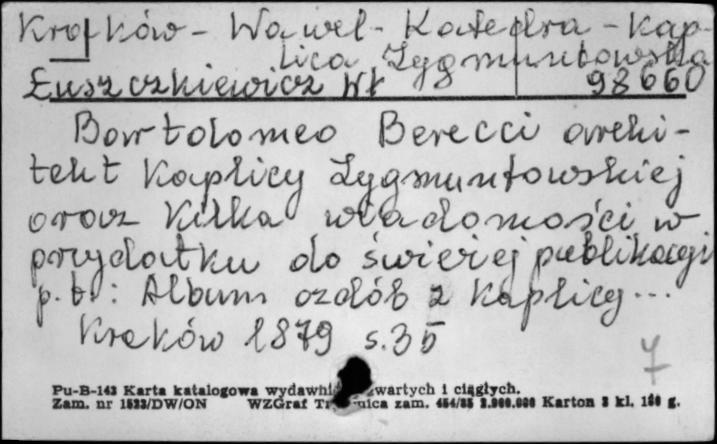 Kraków - Wawel - Katedra - Kap-
lica Zygmuntowska
Łuszczkiewicz Wł 98660
Bartolomeo Berecci archi-
tekt Kaplicy Zygmuntowskiej
oraz Kilka wiadomości w
przydatku do świeżej publikacji
p.t.: Album ozdób z Kaplicy...
Kraków 1879 s.35
7
Pu-B-143 Karta katalogowa wydawni wartych i ciągłych.
Zam. nr 1523/DW/ON WZGraf zam. 454/85 2.000.000 Karton 3 kl. 180 g.